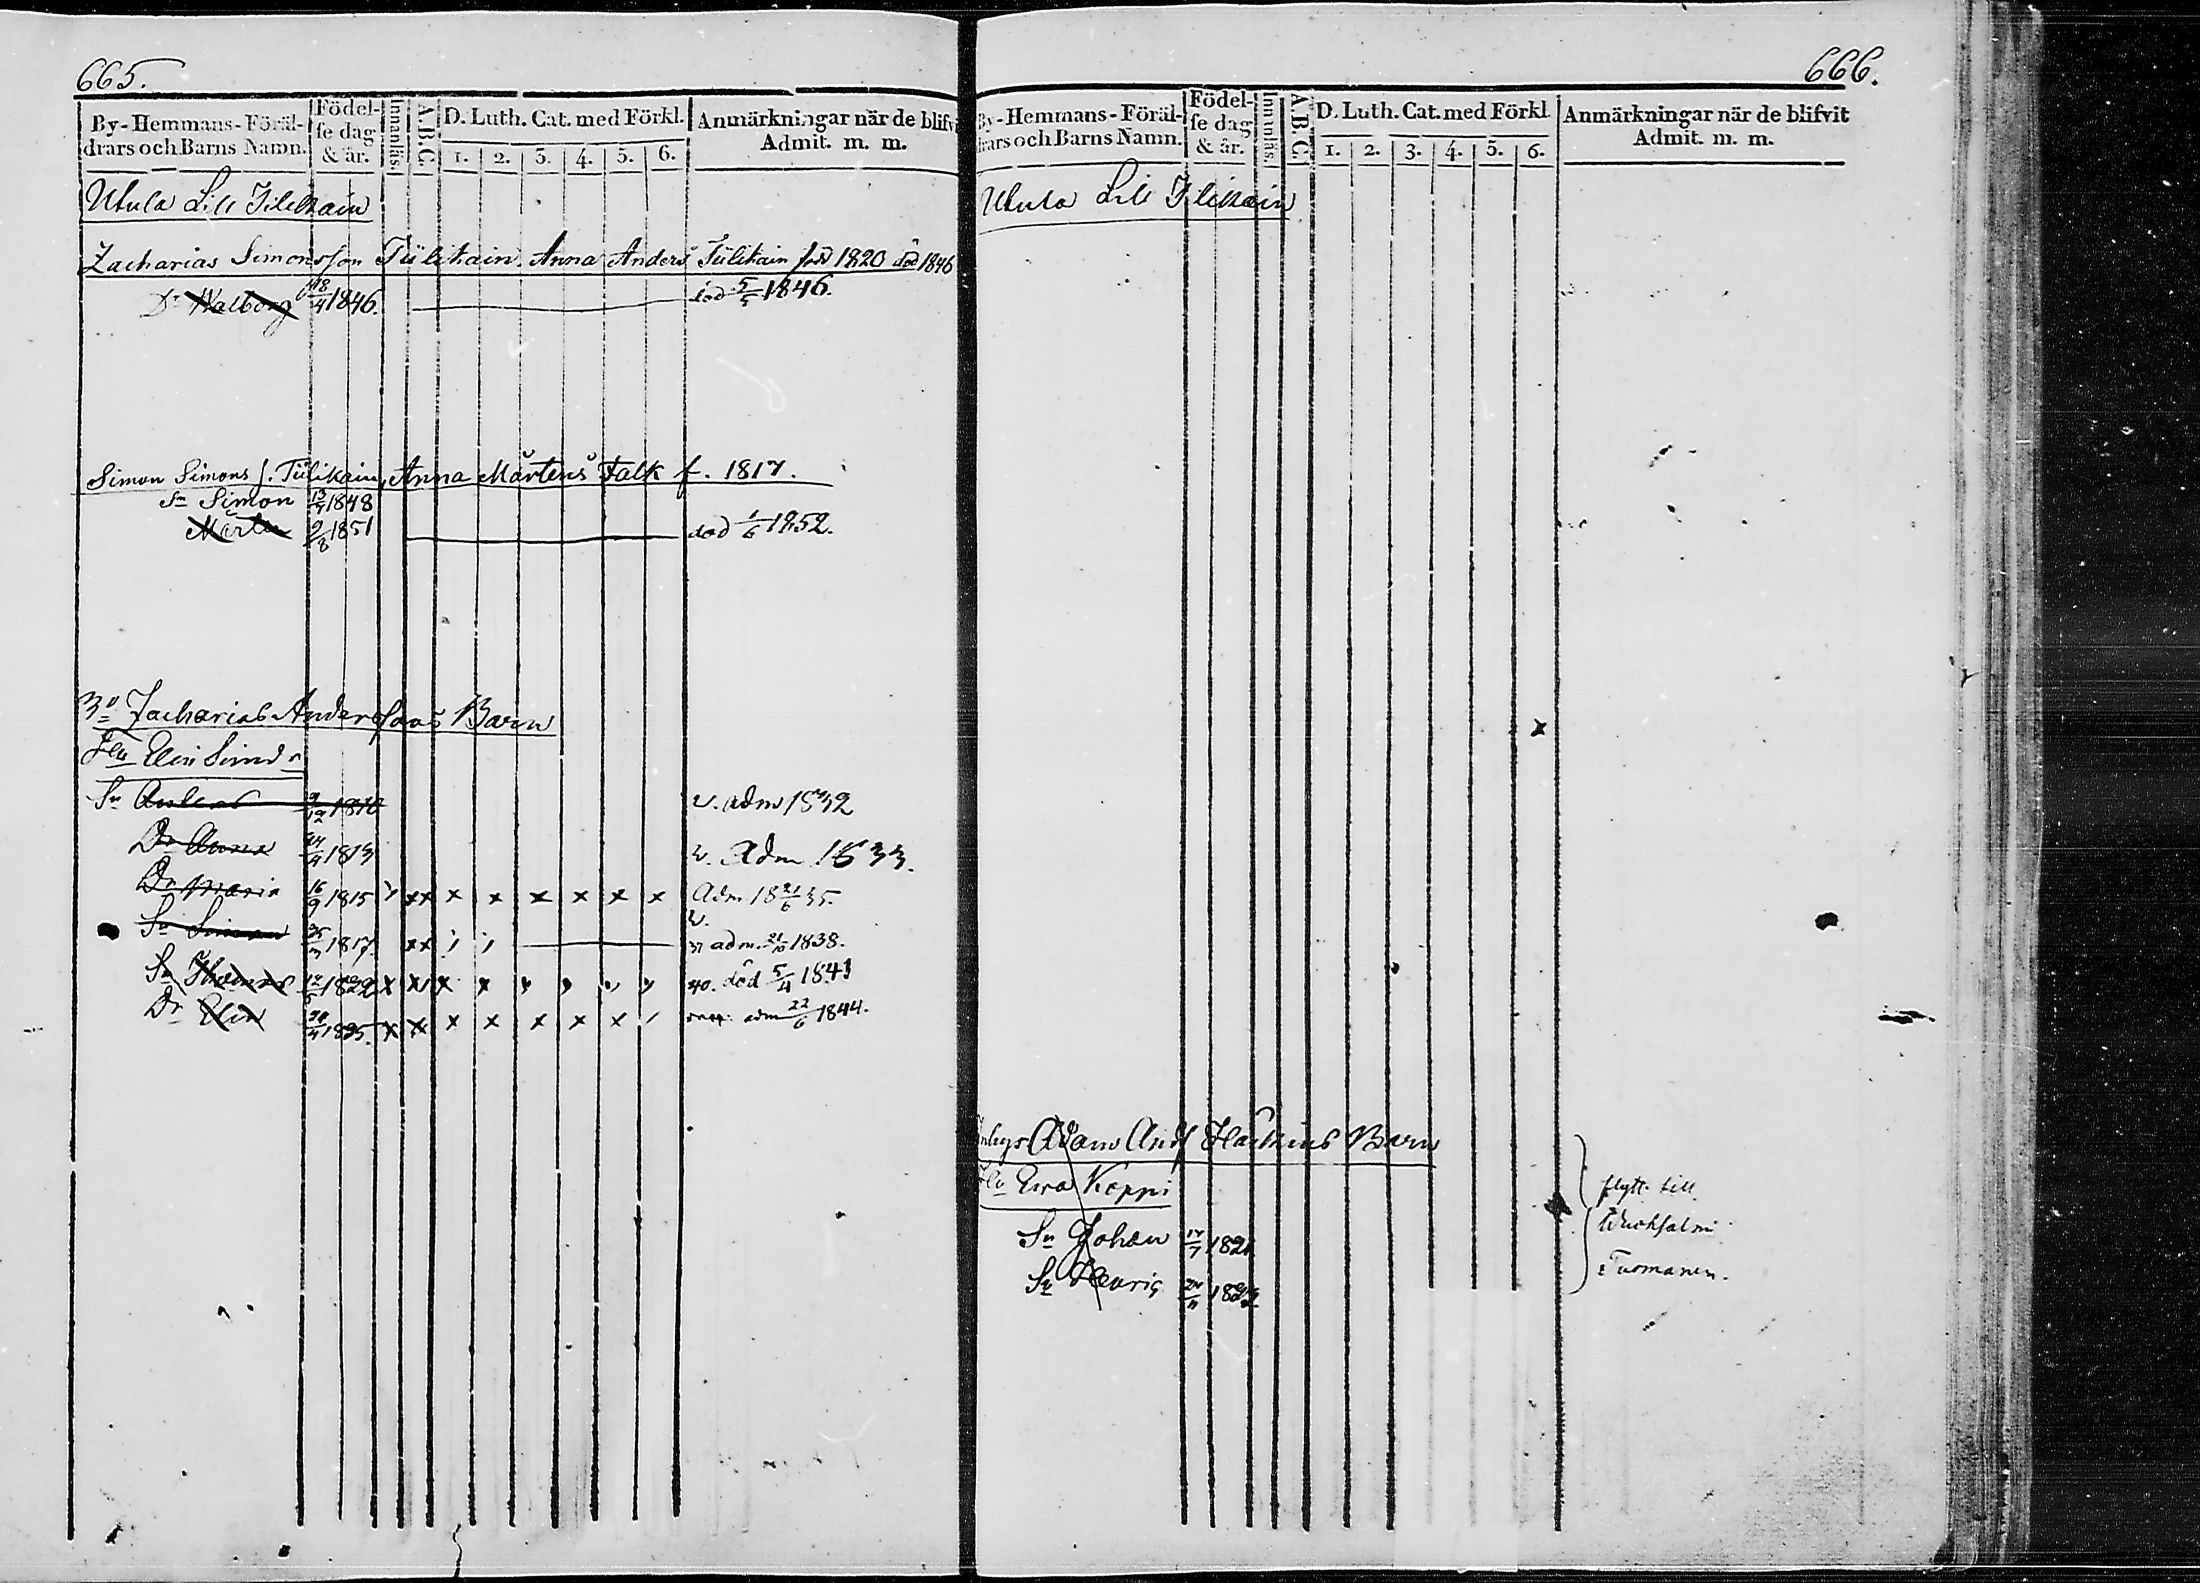 665.
By-Hemmans-Föräl-
drars och Barns Namn.
Födel-
se dag
& år.
Innanläs.
A.B.C.
D. Luth. Cat. med Förkl.
1. 2. 3. 4. 5. 6.
Anmärkningar när de blifvit
Admit. m. m.
Utula Lill Tilikain
Zacharias Simonsson Tülikain. Anna Anders Tülikain född 1820 död 1846
Dr Walborg 18/4 1846. död 5/5 1846.
Simon Simons f. Tülikain, Anna Mårtens Falk f. 1817.
Sn Simon 1848
Mårten 9/8 1851 död 1/6 1852.
3o Zacharias Andersons Barn
Hu Elin Simdr
Sn Anders 1810 v. adm 1832
Dr Anna 1813 v. Adm 1833.
Dr Maria 16/9 1815 x x x x x x x x Adm 18 21/6 35.
v.
Sn Simon 1817 x x adm. 21/10 1838.
Sn Thomas 1822 x x x x x 40. död 5/4 1841
Dr Elin 1825. x x x x x x x adm 22/6 1844.
666.
By-Hemmans-Föräl-
drars och Barns Namn.
Födel-
se dag
& år.
Innanläs.
A.B.C.
D. Luth. Cat. med Förkl.
1. 2. 3. 4. 5. 6.
Anmärkningar när de blifvit
Admit. m. m.
Utula Lill Tilikain
Inhys Adam And Haikins Barn
Hu Ewa Koppi
Sn Johan 1821
Sn Henric 1822
flytt. till
Tuomanen.